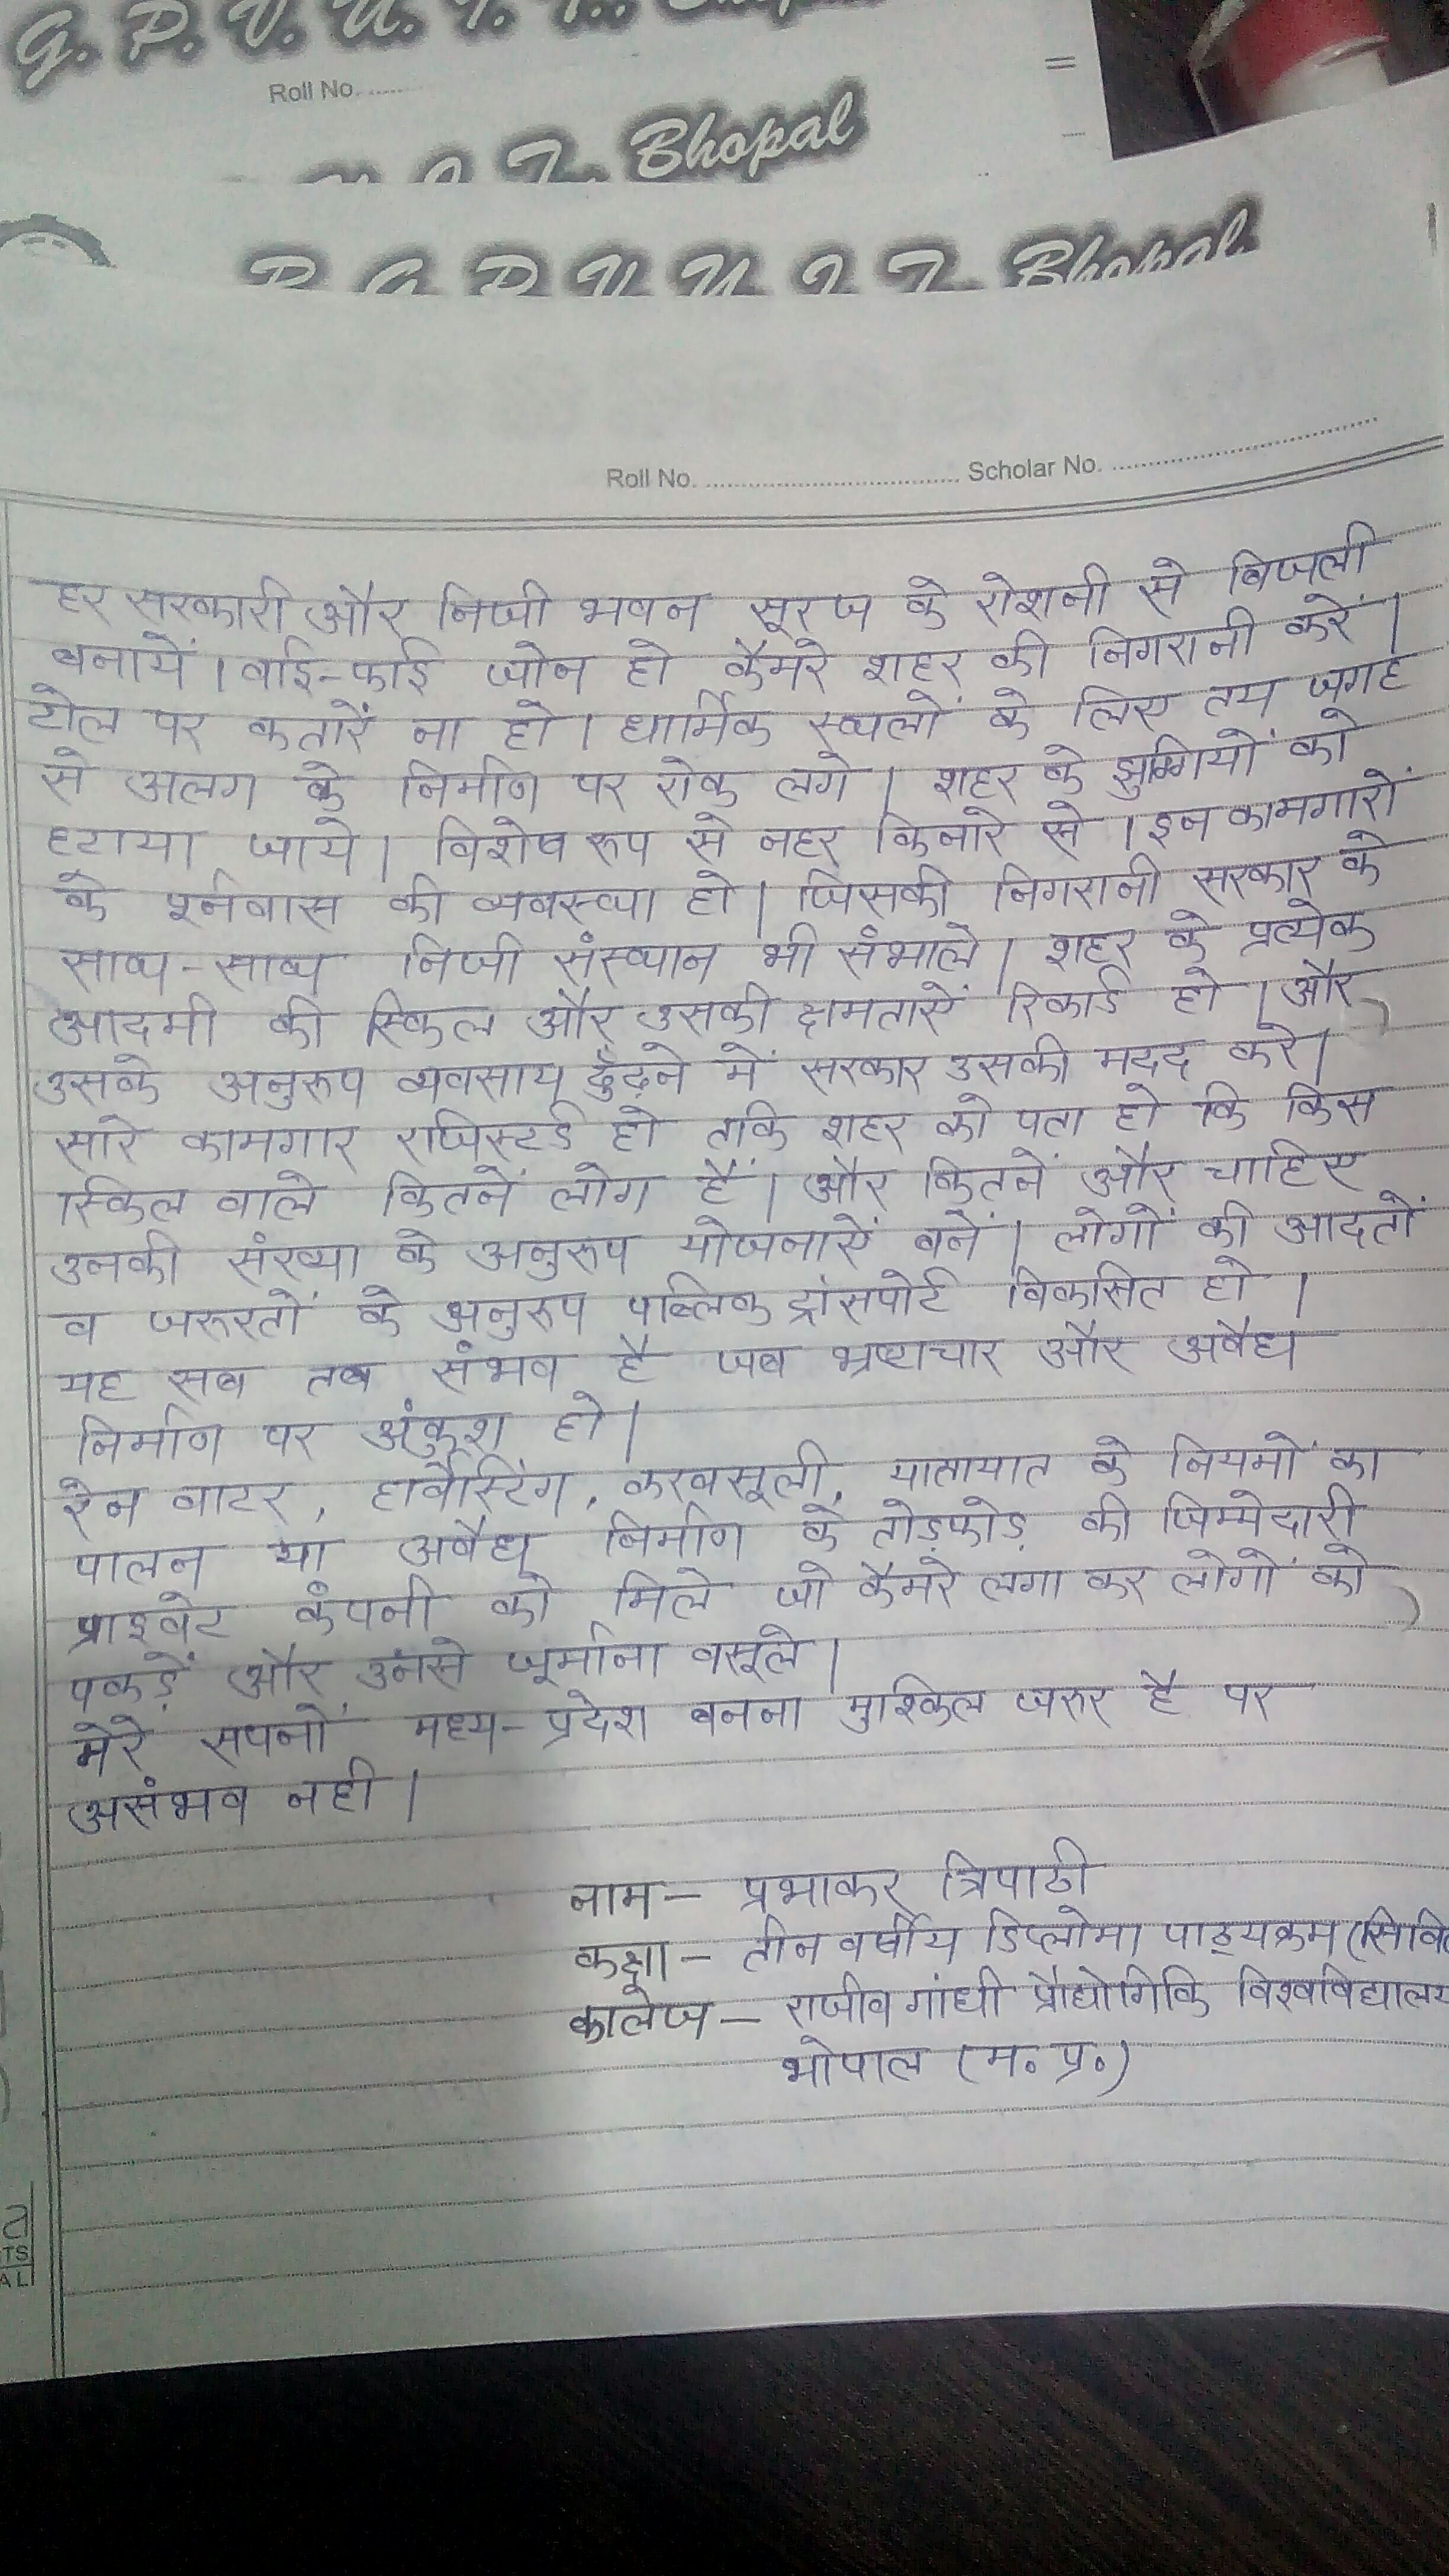 G. P. V. U. I. T.. Bhopal
Roll No. ........
U. I. T.. Bhopal
R. G. P. V. U. I. T.. Bhopal.
Roll No. .................................... Scholar No. ......................................
हर सरकारी और निजी भवन सूरज के रोशनी से बिजली
बनायें । वाई-फाई जोन हो कैमरे शहर की निगरानी करें ।
टोल पर कतारें ना हो । धार्मिक स्थलों के लिए तय जगह
से अलग के निर्माण पर रोक लगे । शहर के झुग्गियों को
हटाया जाये । विशेष रूप से नहर किनारे से । इन कामगारों
के र्पुनवास की व्यवस्था हो । जिसकी निगरानी सरकार के
साथ-साथ निजी संस्थान भी संभाले । शहर के प्रत्येक
आदमी की स्किल और उसकी क्षमताऐं रिकार्ड हो । और
उसके अनुरूप व्यवसाय ढूँढ़ने में सरकार उसकी मदद करे ।
सारे कामगार रजिस्टर्ड हो ताकि शहर को पता हो कि किस
स्किल वाले कितनें लोग हैं । और कितनें और चाहिए
उनकी संख्या के अनुरूप योजनाऐं बनें । लोगों की आदतों
व जरूरतों के अनुरूप पब्लिक ट्रांसपोर्ट विकसित हो ।
यह सब तब संभव है जब भ्रष्टाचार और अवैध
निर्माण पर अंकुश हो ।
रेन वाटर, हार्वेस्टिंग, करवसूली, यातायात के नियमों का
पालन या अवैध निर्माण के तोड़फोड़ की जिम्मेदारी
प्राइवेट कंपनी को मिले जो कैमरे लगा कर लोगों को
पकड़ें और उनसे जूर्माना वसूले ।
मेरे सपनों मध्य-प्रदेश बनना मुश्किल जरूर है पर
असंभव नही ।
नाम - प्रभाकर त्रिपाठी
कक्षा - तीन वर्षीय डिप्लोमा पाठ्यक्रम (सिवि
कालेज - राजीव गांधी प्रौद्योगिकि विश्वविद्यालय
भोपाल (म. प्र.)
TS
AL